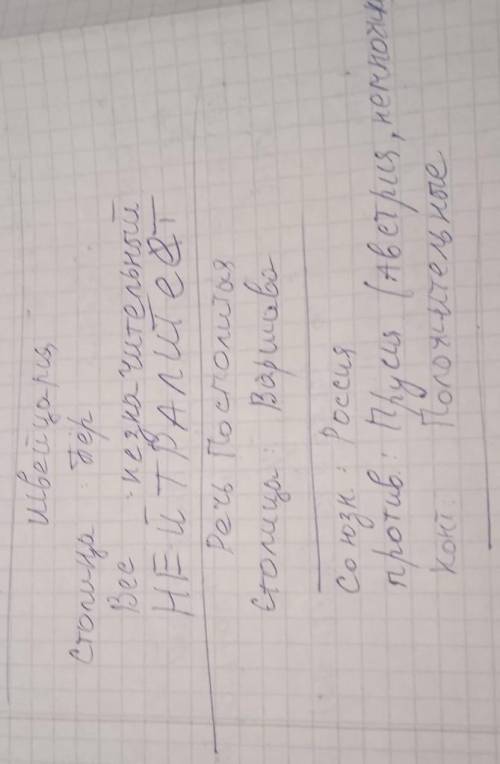 Швейцария
Столица : Бер
Вес незначительный
НЕЙТРАЛИТеТ
Речь Посполитая
Столица : Варшава
Союзн.: Россия
против.: Прусия (Австрия, немножк
Конт: Положительные